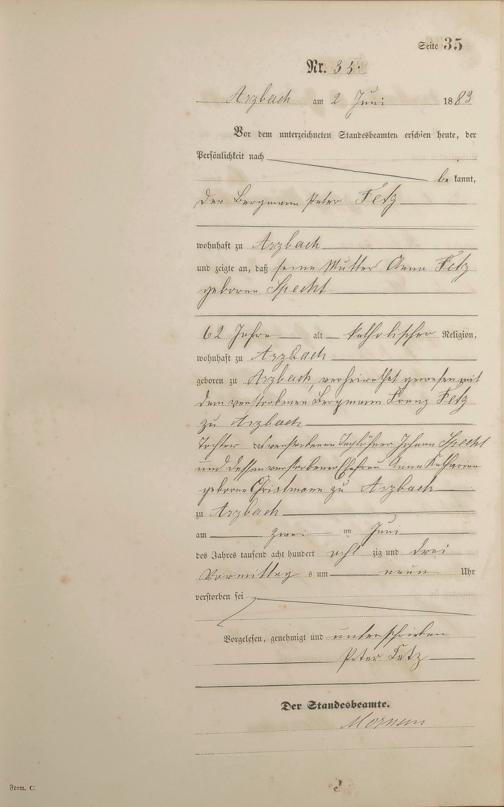 Seite 35
Nr. 35.
Arzbach am 2 Juni 1883
Vor dem unterzeichneten Standesbeamten erschien heute, der
Persönlichkeit nach
be kannt,
der Bergmann Peter Fetz
wohnhaft zu Arzbach
und zeigte an, daß seine Mutter Anna Fetz
geborene Specht
62 Jahre alt katholischer Religion,
wohnhaft zu Arzbach
geboren zu Arzbach, verheirathet gewesen mit
dem verstorbenen Bergmann Franz Fetz
zu Arzbach
Tochter des verstorbenen Taglöhner Johann Specht
und dessen verstorbener Ehefrau Anna Katharina
geborene Christmann zu Arzbach
zu Arzbach
am zwei ten Juni
des Jahres tausend acht hundert acht zig und drei
Vormittag s um neun Uhr
verstorben sei
Vorgelesen, genehmigt und unterschrieben
Peter Fetz
Der Standesbeamte.
Form. C.